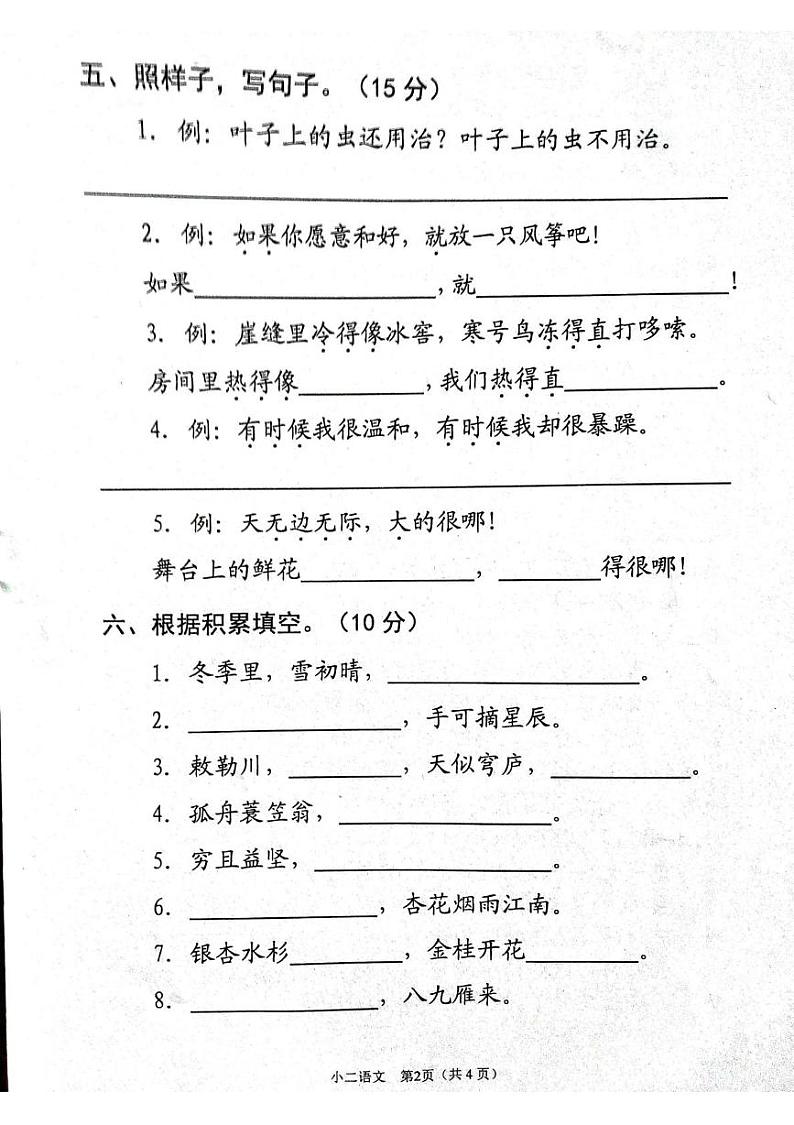 五、照样子，写句子。（15 分）
1. 例：叶子上的虫还用治？叶子上的虫不用治。
2. 例：如果你愿意和好，就放一只风筝吧！
如果____________，就____________！
3. 例：崖缝里冷得像冰窖，寒号鸟冻得直打哆嗦。
房间里热得像________，我们热得直________。
4. 例：有时候我很温和，有时候我却很暴躁。
5. 例：天无边无际，大的很哪！
舞台上的鲜花__________，______得很哪！
六、根据积累填空。（10 分）
1. 冬季里，雪初晴，____________。
2. ____________，手可摘星辰。
3. 敕勒川，______，天似穹庐，________。
4. 孤舟蓑笠翁，____________。
5. 穷且益坚，____________。
6. __________，杏花烟雨江南。
7. 银杏水杉______，金桂开花______。
8. __________，八九雁来。
小二语文 第2页（共 4 页）